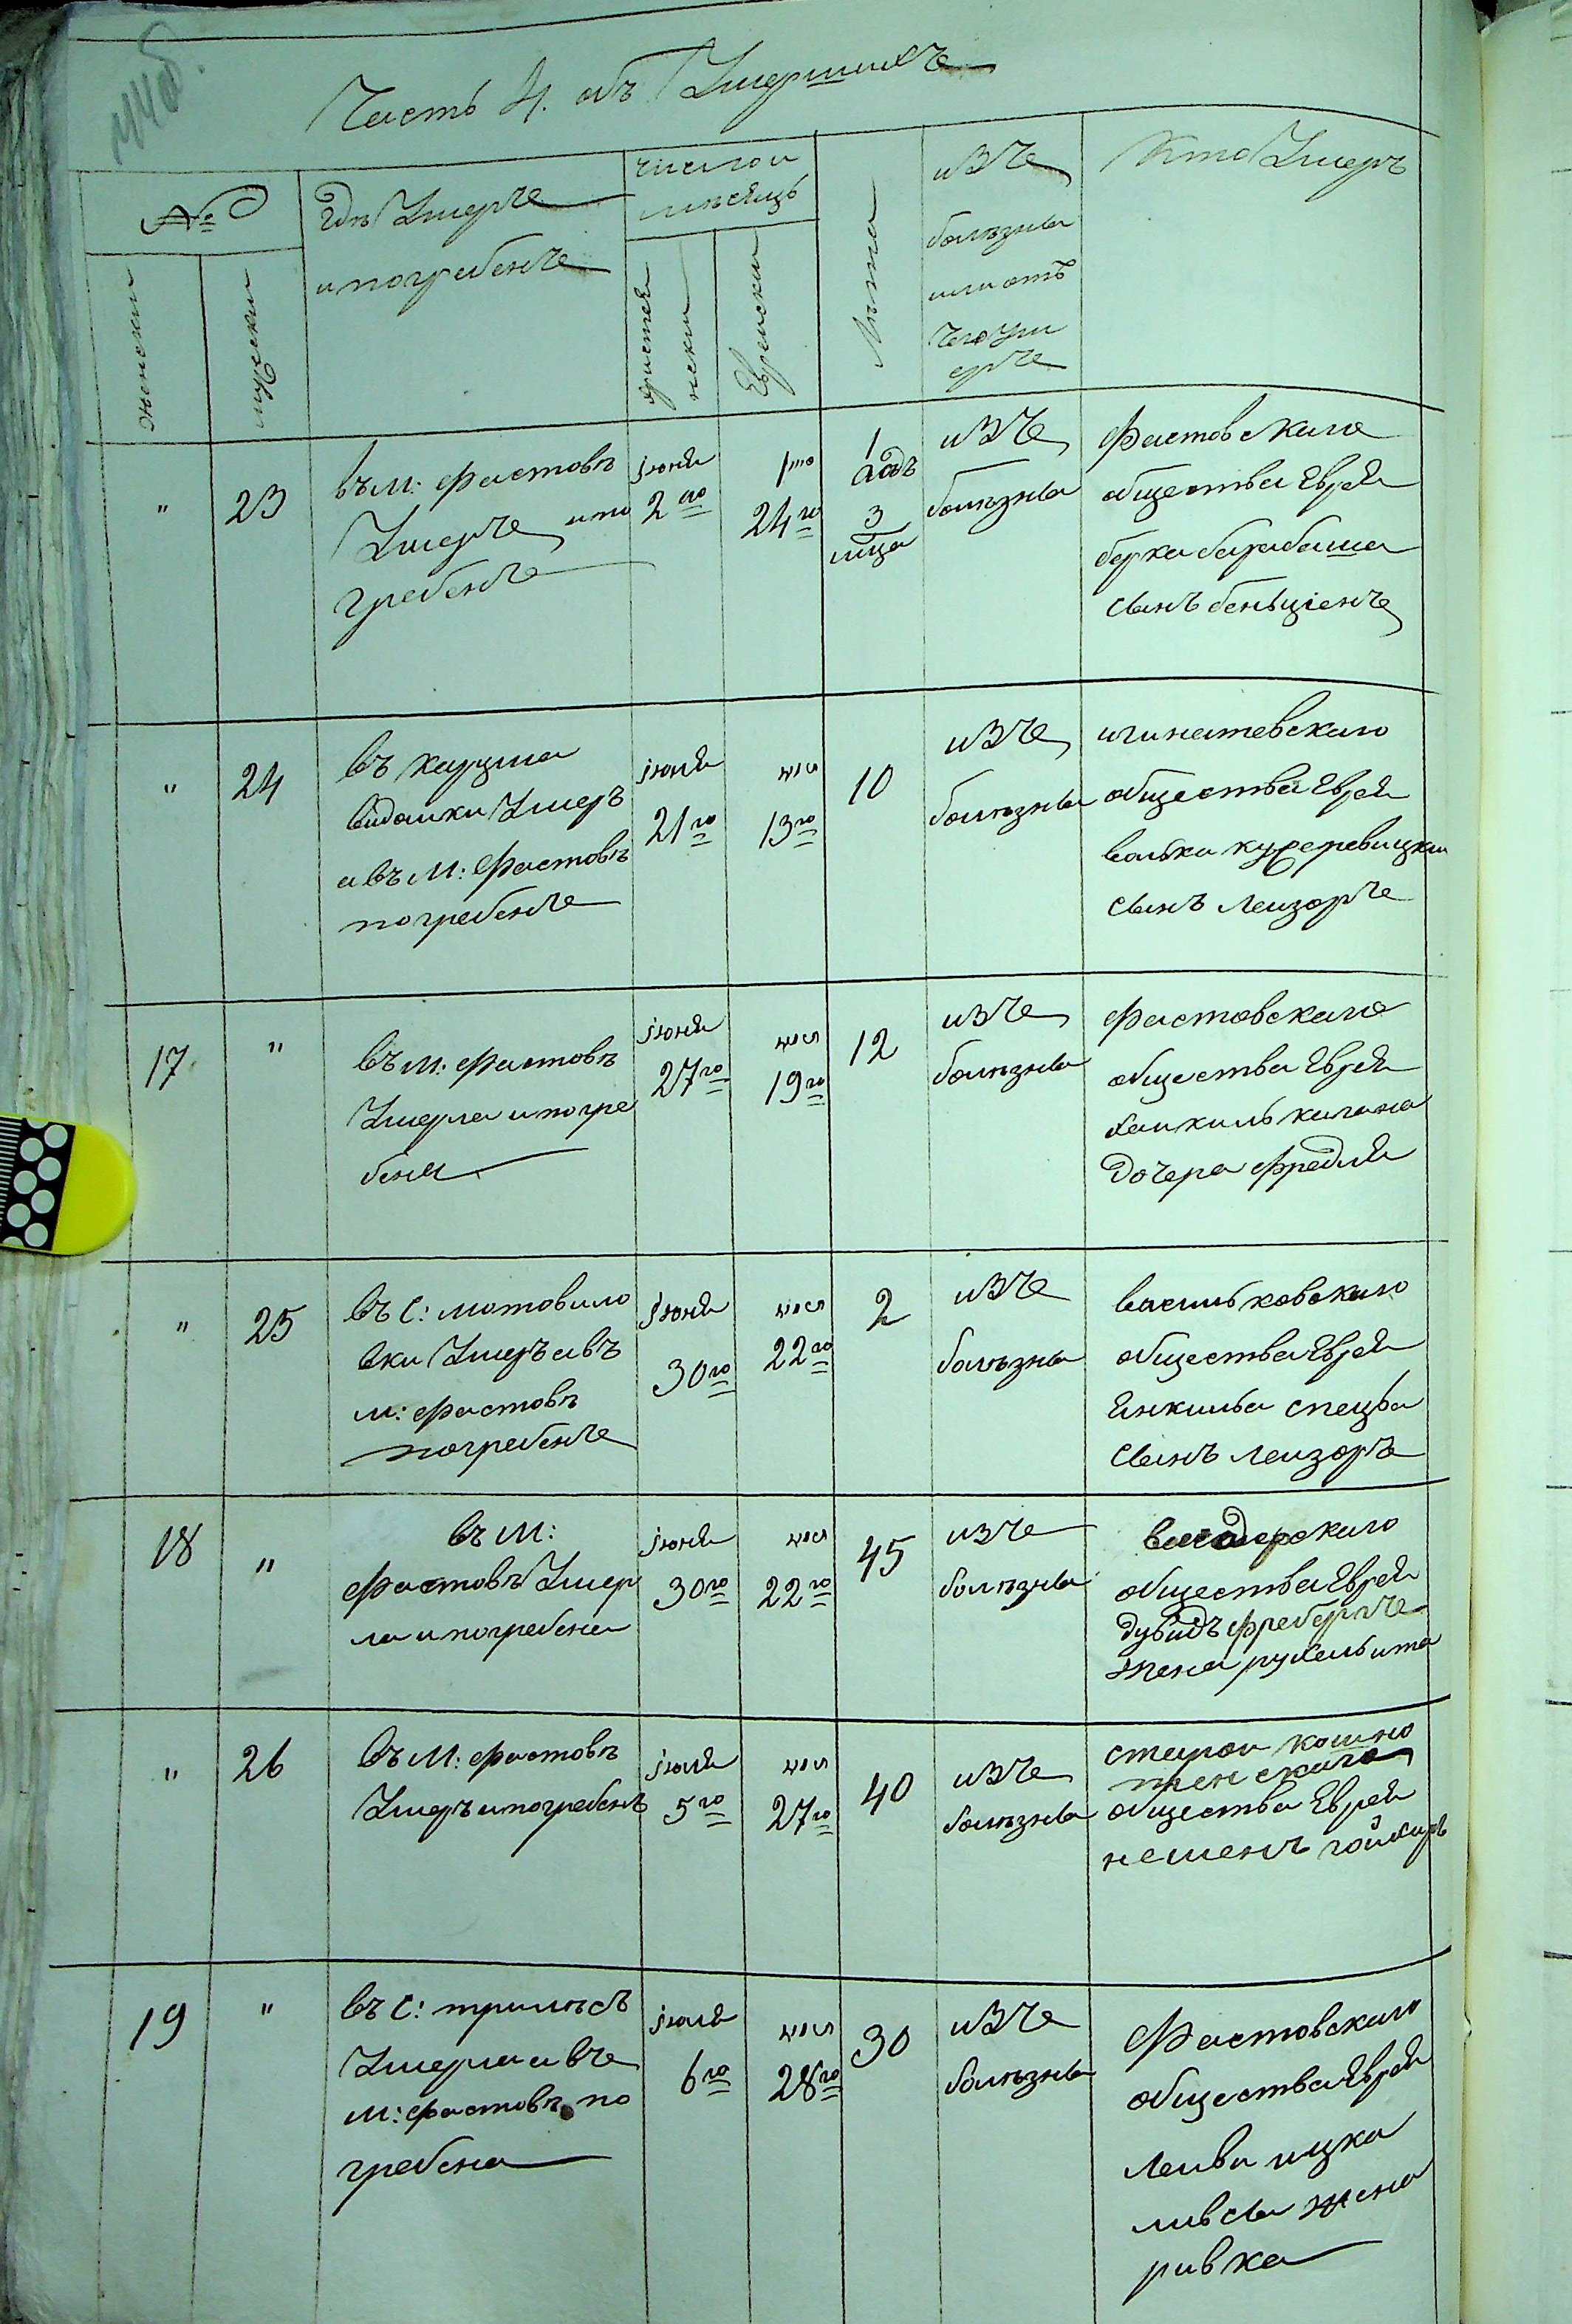 Часть 4. объ Умершихъ
№
женски
мужески
гдѣ Умеръ
и погребенъ
число и
мѣсяцъ
христiя
нски
Еврейски
Лѣта
изъ
болѣзни
или отъ
чего Уми
еръ
Кто Умеръ
"
23
въ м: Фастовѣ
Умеръ и по
гребенъ
Iюня
2го
1то
24го
1
годъ
3
мца
изъ
болѣзни
Фастовскаго
общества Еврея
берка барабаша
сынъ бенцiенъ
"
24
въ карчма
Умеръ
а въ м: Фастовъ
погребенъ
Iюня
21го
תמוז
13го
10
изъ
болѣзни
общества Еврея
волька
сынъ лейзоръ
17
"
въ м: Фастовѣ
Умерла и погре
бена
Iюня
27го
תמוז
19го
12
изъ
болѣзни
Фастовскаго
общества Еврея
хаикиль кагана
дочера фредля
"
25
въ с: мотовило
вки Умеръ а въ
м: Фастовѣ
погребенъ
Iюня
30го
תמוז
22го
2
изъ
болѣзни
васильковскаго
общества Еврея
Янкиля спецва
сынъ лейзоръ
18
"
въ м:
Фастовъ Умер
ла и погребена
Iюня
30го
תמוז
22го
45
изъ
болѣзни
общества Еврея
дувидъ
жена рухель ита
"
26
въ м: Фастовѣ
Умеръ и погребенъ
Iюля
5го
תמוז
27го
40
изъ
болѣзни
старои
общества Еврея
19
"
въ с: трилѣсъ
Умерла а въ
м: Фастовѣ по
гребена
Iюля
6го
תמוז
28го
30
изъ
болѣзни
Фастовскаго
общества Еврея
лейви ицка
жена
ривка